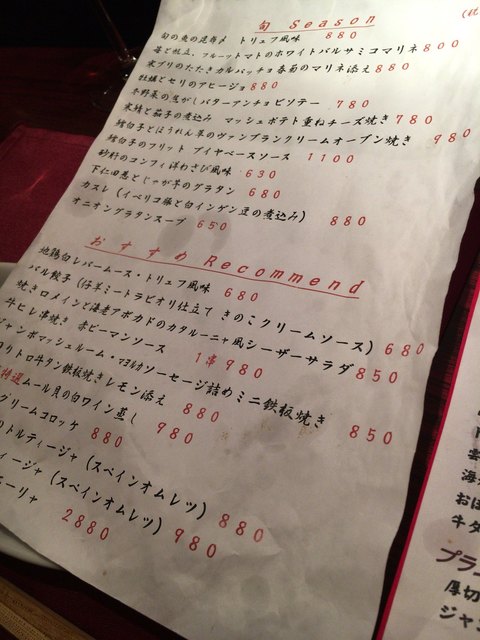 旬 Season
旬の魚の昆布〆 トリュフ風味 880
苺と帆立、フルーツトマトのホワイトバルサミコマリネ 800
寒ブリのたたきカルパッチョ春菊のマリネ添え 880
牡蠣とセリのアヒージョ 880
冬野菜の焦がしバターアンチョビソテー 780
米鱒と茄子の煮込み マッシュポテト重ねチーズ焼き 780
鱈白子とほうれん草のヴァンブランクリームオーブン焼き 980
鱈白子のフリット ブイヤベースソース 1100
砂肝のコンフィ洋わさび風味 630
下仁田葱とじゃが芋のグラタン 680
カスレ(イベリコ豚と白インゲン豆の煮込み) 880
オニオングラタンスープ 650
おすすめ Recommend
地鶏白レバームース・トリュフ風味 680
バル餃子(仔羊ミートラビオリ仕立て きのこクリームソース) 680
焼きロメインと海老アボカドのカタルーニャ風シーザーサラダ 850
牛ヒレ串焼き 赤ピーマンソース 1串 980
ジャンボマッシュルーム・マヨルカソーセージ詰めミニ鉄板焼き 850
コリトロ牛タン鉄板焼きレモン添え 880
特選ムール貝の白ワイン蒸し 980
クリームコロッケ 880
トルティージャ(スペインオムレツ) 880
ィージャ(スペインオムレツ) 980
エーリャ 2880
海
おほ
牛タ
プラ
厚切
ジャン